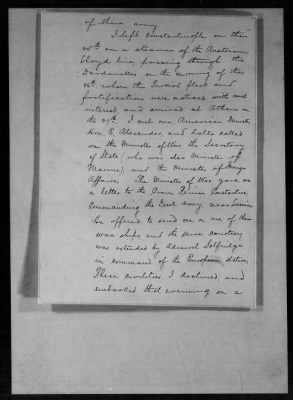 of their army
I left Constantinople on the
25th on a steamer of the Austrian
Lloyd line, passing through the
Dardanelles on the morning of the
26th where the Turkish fleet and
fortifications were noticed with much
interest and arrived at Athens on
the 27th. I met our American Minister
Hon. E. Alexander and called
on the Minister of War the Secretary
of State, who was also Minister of
Marine), and the Minister of Foreign
Affairs. The Minister of War gave me
a letter to the Crown Prince Constantine
commanding the Greek army, near Larissa
he offered to send me on one of their
war ships and the same courtesy
was extended by Admiral Selfridge
in command of the European station.
These civilities I declined, and
embarked that evening on a